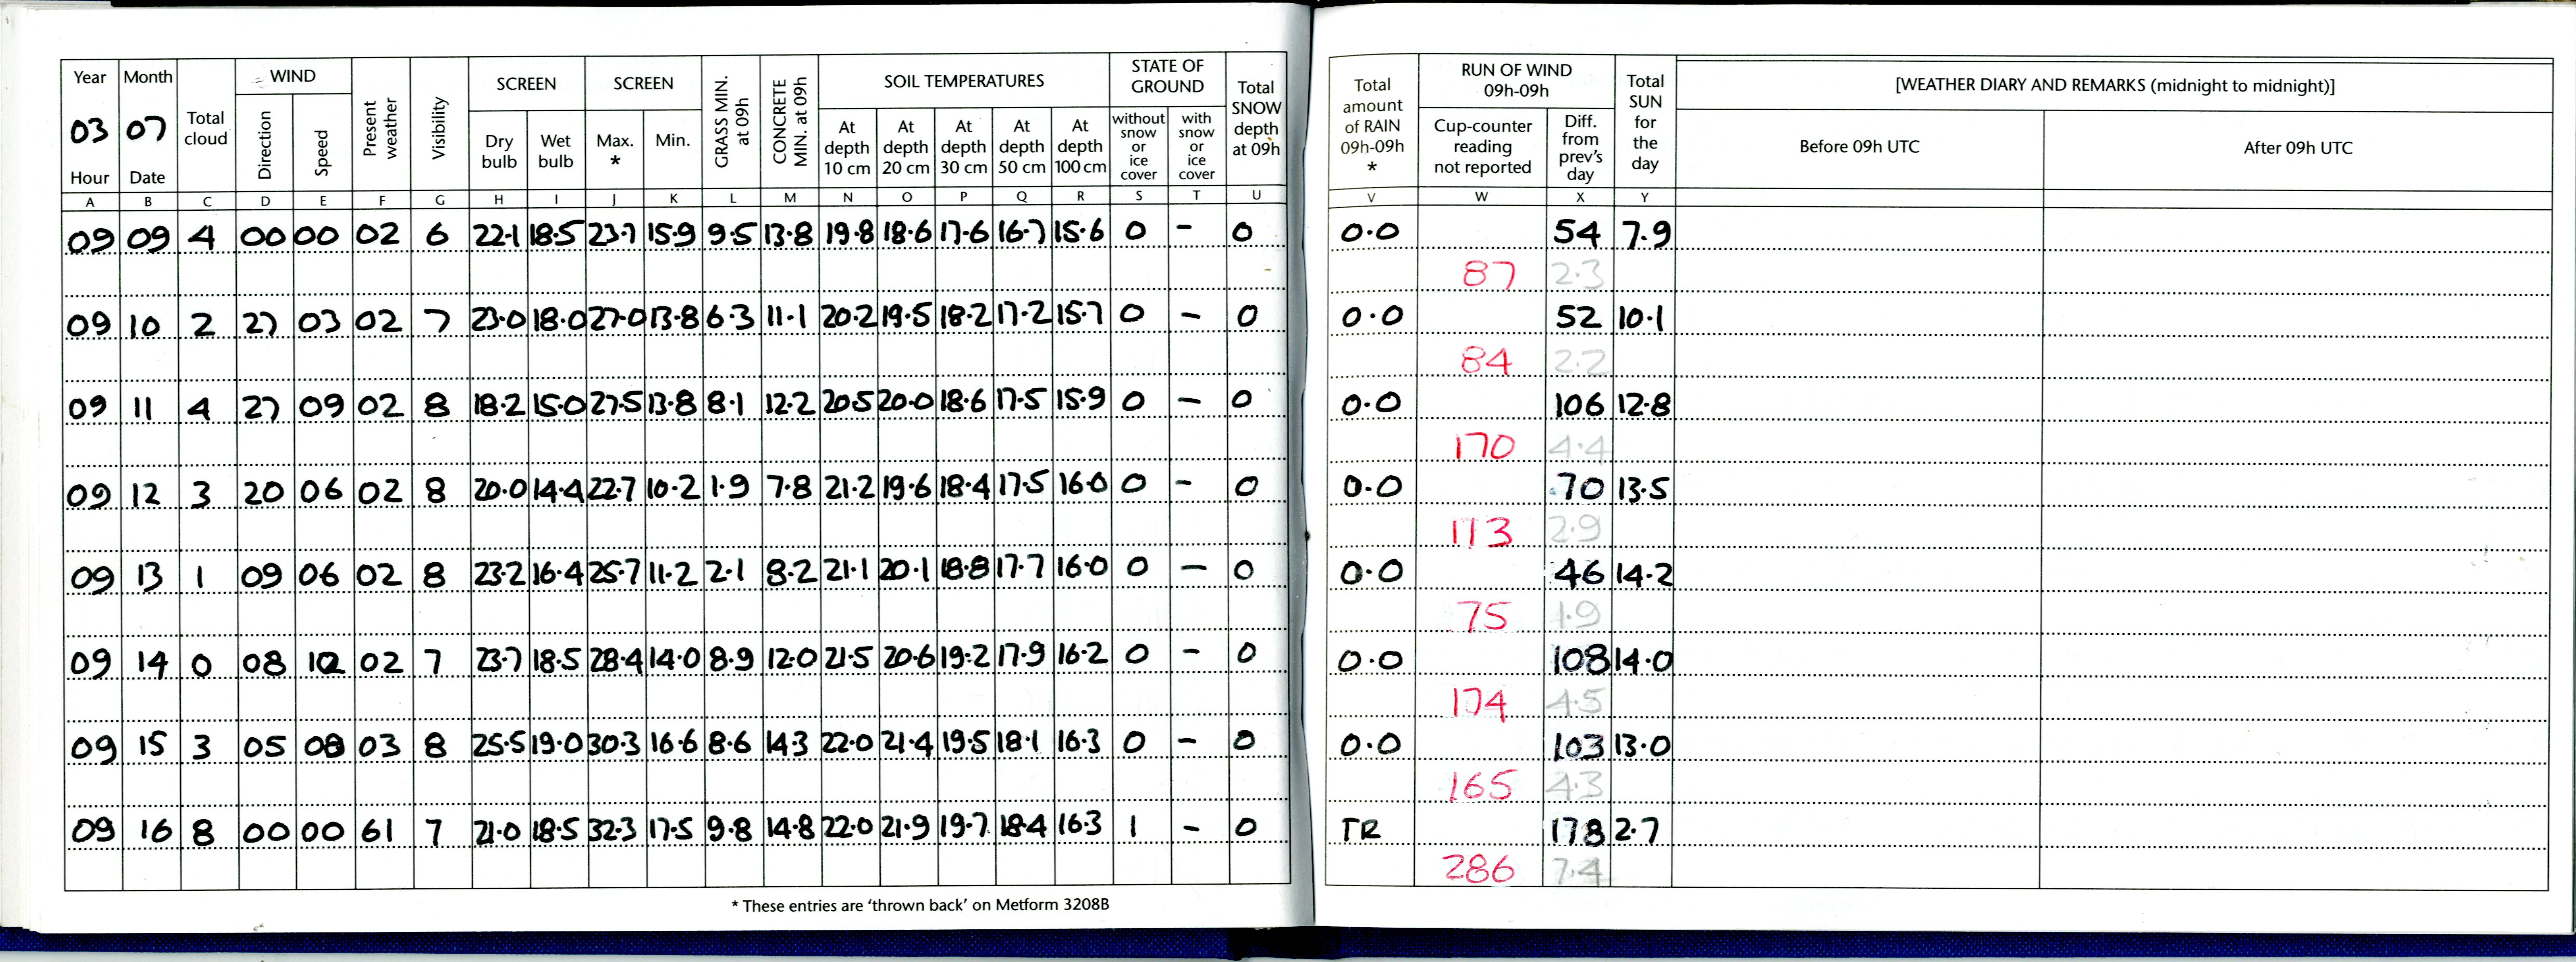 Year Month Total cloud WIND Present weather Visibility SCREEN SCREEN GRASS MIN. at 09h CONCRETE MIN. at 09h SOIL TEMPERATURES STATE OF GROUND Total SNOW depth at 09h Total amount of RAIN 09h-09h * RUN OF WIND 09h-09h Total SUN for the day [WEATHER DIARY AND REMARKS (midnight to midnight)]
03 07 Direction Speed Dry bulb Wet bulb Max. * Min. At depth 10 cm At depth 20 cm At depth 30 cm At depth 50 cm At depth 100 cm without snow or ice cover with snow or ice cover Cup-counter reading not reported Diff. from prev's day Before 09h UTC After 09h UTC
Hour Date
A B C D E F G H I J K L M N O P Q R S T U V W X Y
09 09 4 00 00 02 6 22.1 18.5 23.7 15.9 9.5 13.8 19.8 18.6 17.6 16.7 15.6 0 - 0 0.0 54 7.9
87 2.3
09 10 2 27 03 02 7 23.0 18.0 27.0 13.8 6.3 11.1 20.2 19.5 18.2 17.2 15.7 0 - 0 0.0 52 10.1
84 2.2
09 11 4 27 09 02 8 18.2 15.0 27.5 13.8 8.1 12.2 20.5 20.0 18.6 17.5 15.9 0 - 0 0.0 106 12.8
170 4.4
09 12 3 20 06 02 8 20.0 14.4 22.7 10.2 1.9 7.8 21.2 19.6 18.4 17.5 16.0 0 - 0 0.0 70 13.5
113 2.9
09 13 1 09 06 02 8 23.2 16.4 25.7 11.2 2.1 8.2 21.1 20.1 18.8 17.7 16.0 0 - 0 0.0 46 14.2
75 1.9
09 14 0 08 10 02 7 23.7 18.5 28.4 14.0 8.9 12.0 21.5 20.6 19.2 17.9 16.2 0 - 0 0.0 108 14.0
174 4.5
09 15 3 05 08 03 8 25.5 19.0 30.3 16.6 8.6 14.3 22.0 21.4 19.5 18.1 16.3 0 - 0 0.0 103 13.0
165 4.3
09 16 8 00 00 61 7 21.0 18.5 32.3 17.5 9.8 14.8 22.0 21.9 19.7 18.4 16.3 1 - 0 TR 178 2.7
286 7.4
* These entries are 'thrown back' on Metform 3208B